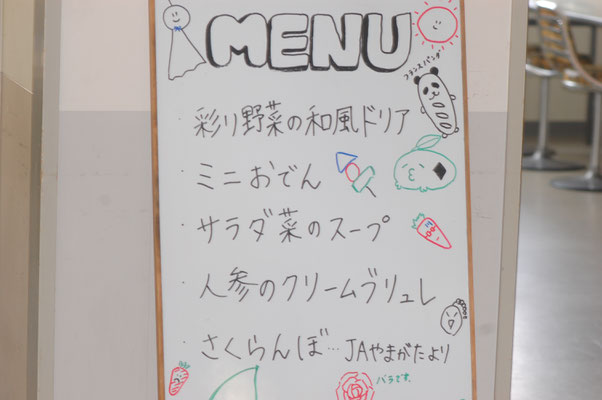 MENU
フランスパンダ
・彩り野菜の和風ドリア
・ミニおでん
・サラダ菜のスープ
・人参のクリームブリュレ
・さくらんぼ…JAやまがたより
バラです。